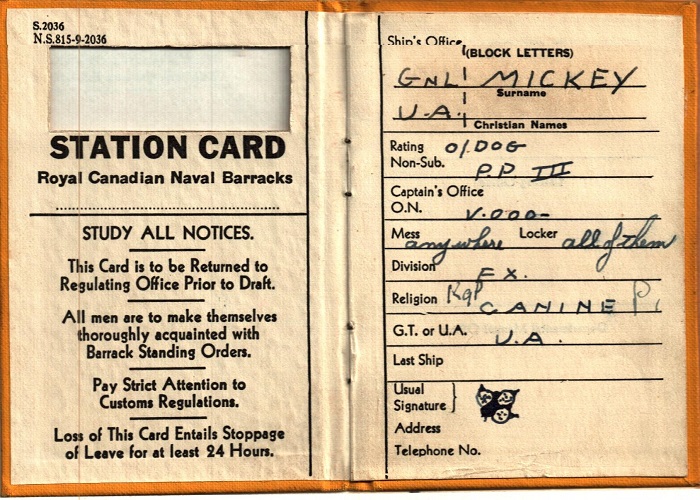 S.2036
N.S.815-9-2036
STATION CARD
Royal Canadian Naval Barracks
STUDY ALL NOTICES.
This Card is to be Returned to
Regulating Office Prior to Draft.
All men are to make themselves
thoroughly acquainted with
Barrack Standing Orders.
Pay Strict Attention to
Customs Regulations.
Loss of This Card Entails Stoppage
of Leave for at least 24 Hours.
Ship's Office
(BLOCK LETTERS)
GNL MICKEY
Surname
U.A.
Christian Names
Rating O/DOG
Non-Sub. P.P III
Captain's Office
O.N. V.000-
Mess anywhere Locker all of them
Division EX.
Religion CANINE
G.T. or U.A. U.A.
Last Ship
Usual
Signature
Address
Telephone No.